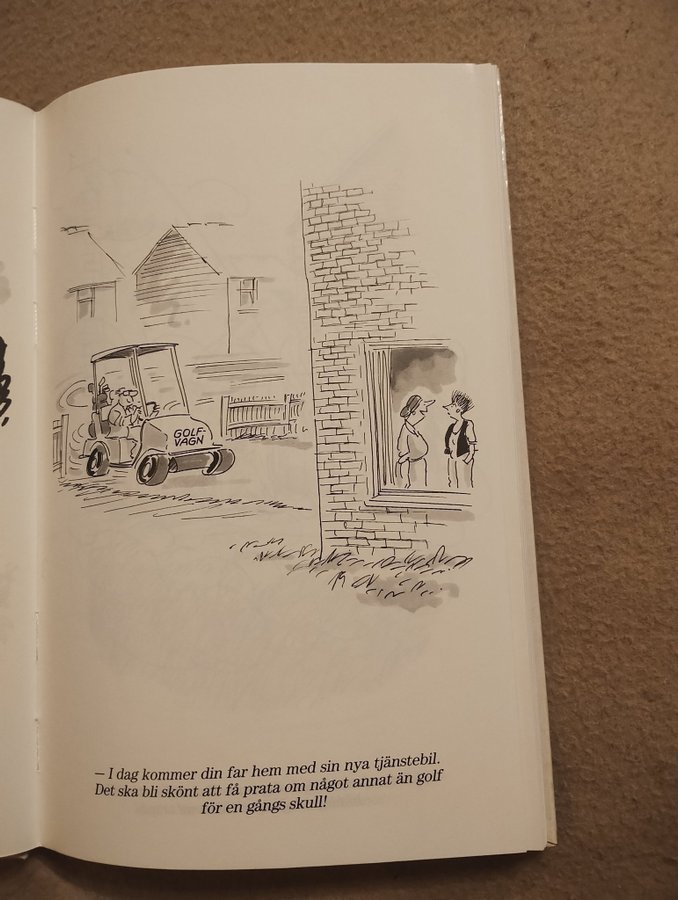 GOLF-
VAGN
– I dag kommer din far hem med sin nya tjänstebil.
Det ska bli skönt att få prata om något annat än golf
för en gångs skull!